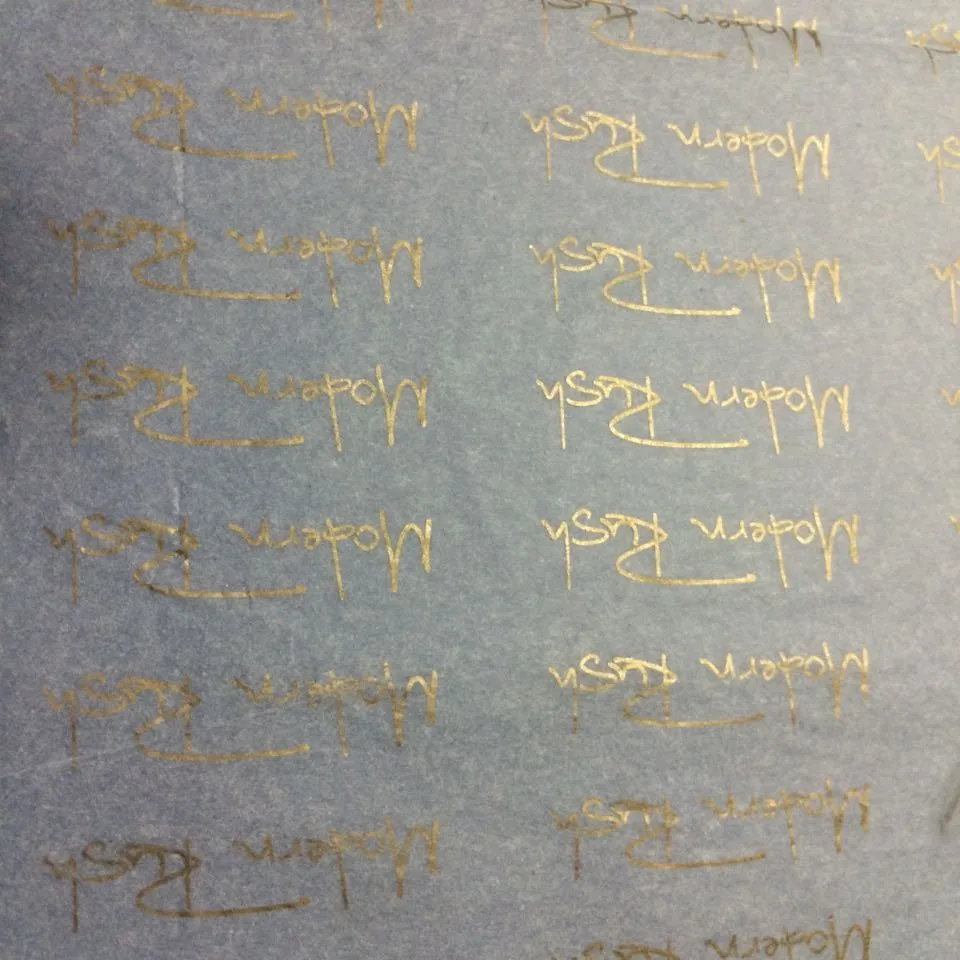 Modern Rush
Modern Rush Modern Rush
Modern Rush Modern Rush
Modern Rush Modern Rush
Modern Rush Modern Rush
Modern Rush Modern Rush
Modern Rush Modern Rush
Modern Rush